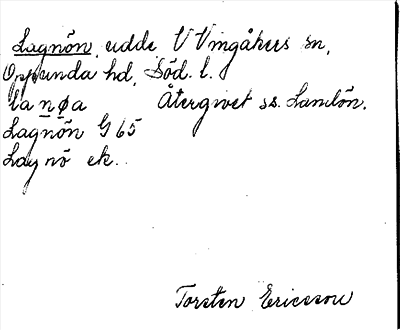 Lagnön, udde V Vingåkers sn,
Oppunda hd, Söd. l.
la n̠ø̠a Återgivet ss. Landön.
Lagnön G 65
Lagnö ek.
Torsten Ericsson